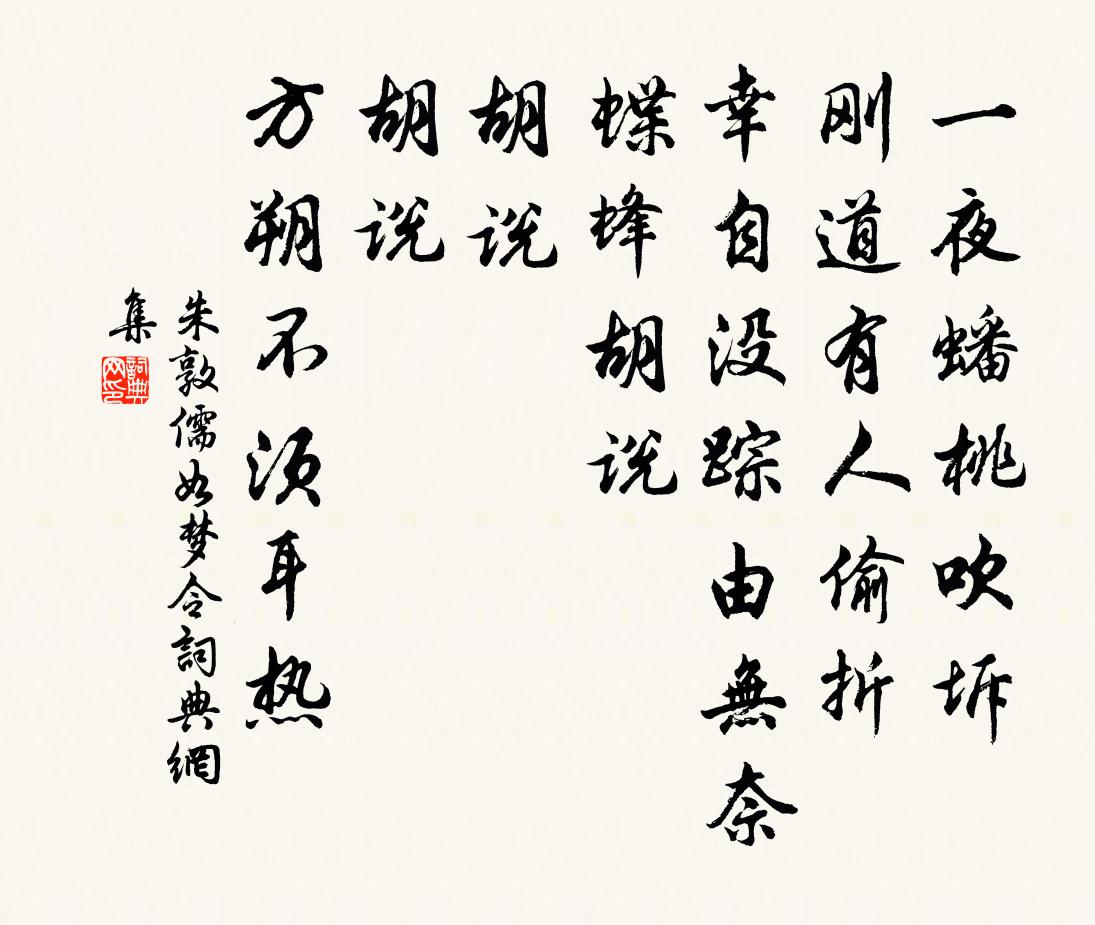 一夜蟠桃吹坼
刚道有人偷折
幸自没踪由無奈
蝶蜂胡说
胡说
胡说
方朔不须耳热
朱敦儒如梦令詞典網
集
詞典
网印